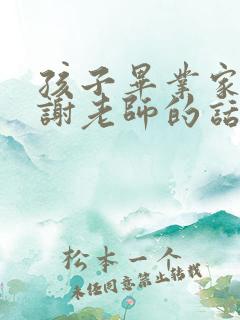 孩子畢業家
謝老師的話
松本一个
未经同意禁止转载